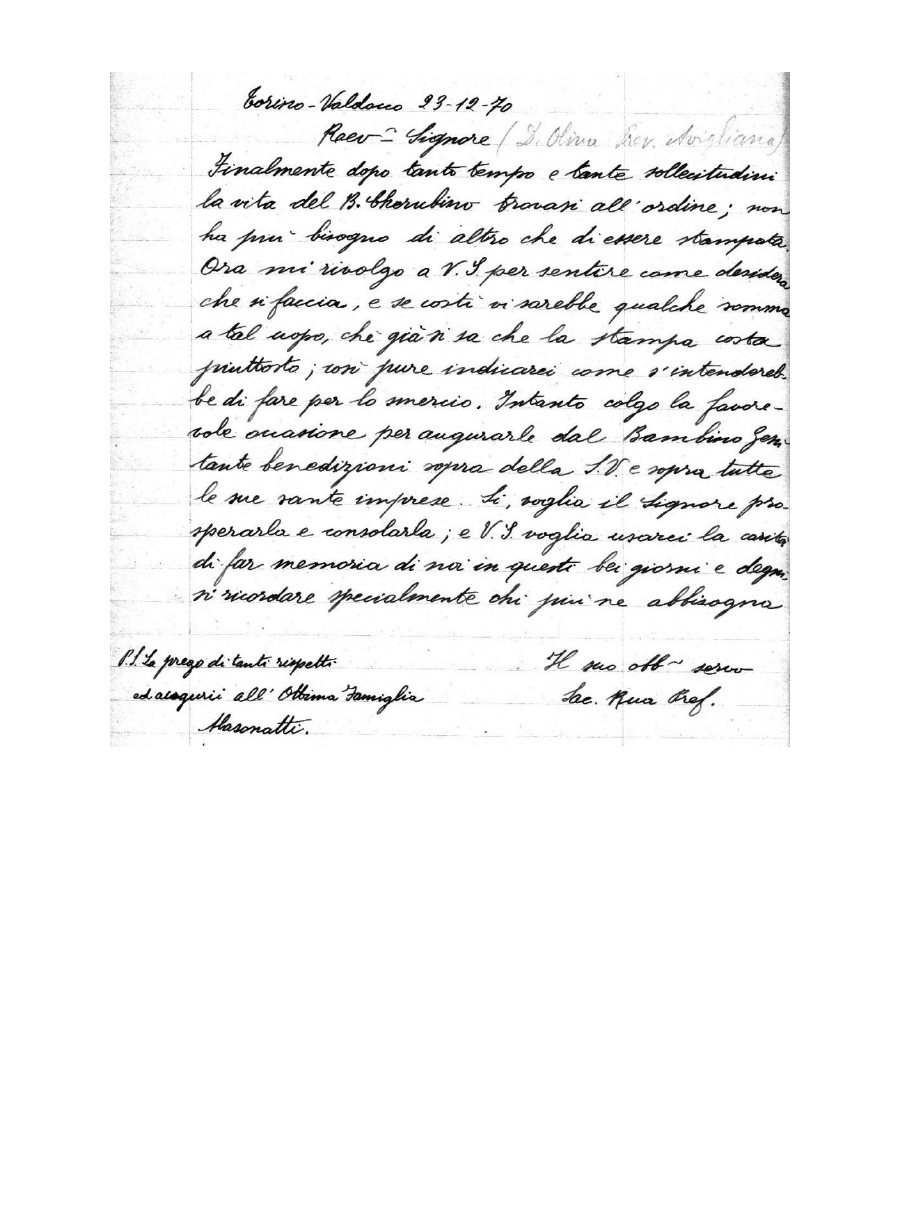 Torino-Valdocco 23-12-70
Rev.mo Signore (D. Olina Prev. Avigliana)
Finalmente dopo tanto tempo e tante sollecitudini
la vita del B. Cherubino trovasi all'ordine; non
ha più bisogno di altro che di essere stampata.
Ora mi rivolgo a V.S. per sentire come desidera
che si faccia, e se costì vi sarebbe qualche somma
a tal uopo, chè già si sa che la stampa costa
piuttosto; così pure indicarci come s'intendereb-
be di fare per lo smercio. Intanto colgo la favore-
vole occasione per augurarle dal Bambino Gesù
tante benedizioni sopra della S.V. e sopra tutte
le sue sante imprese. Sì, voglia il Signore pro-
sperarla e consolarla; e V.S. voglia usarci la carità
di far memoria di noi in questi bei giorni e degni-
si ricordare specialmente chi più ne abbisogna
Il suo obb.mo servo
Sac. Rua Pref.
P.S. La prego di tanti rispetti
ed augurii all'Ottima Famiglia
Alasonatti.